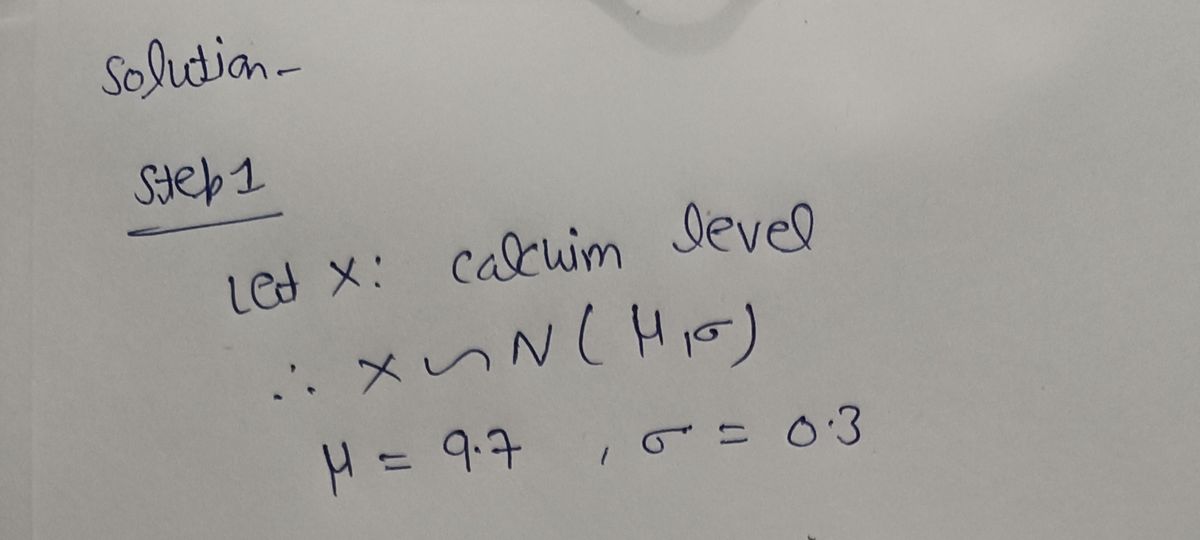 Solution-
Step 1
Let X: calcuim level
∴ X ∼ N(μ,σ)
μ = 9.7 , σ = 0.3